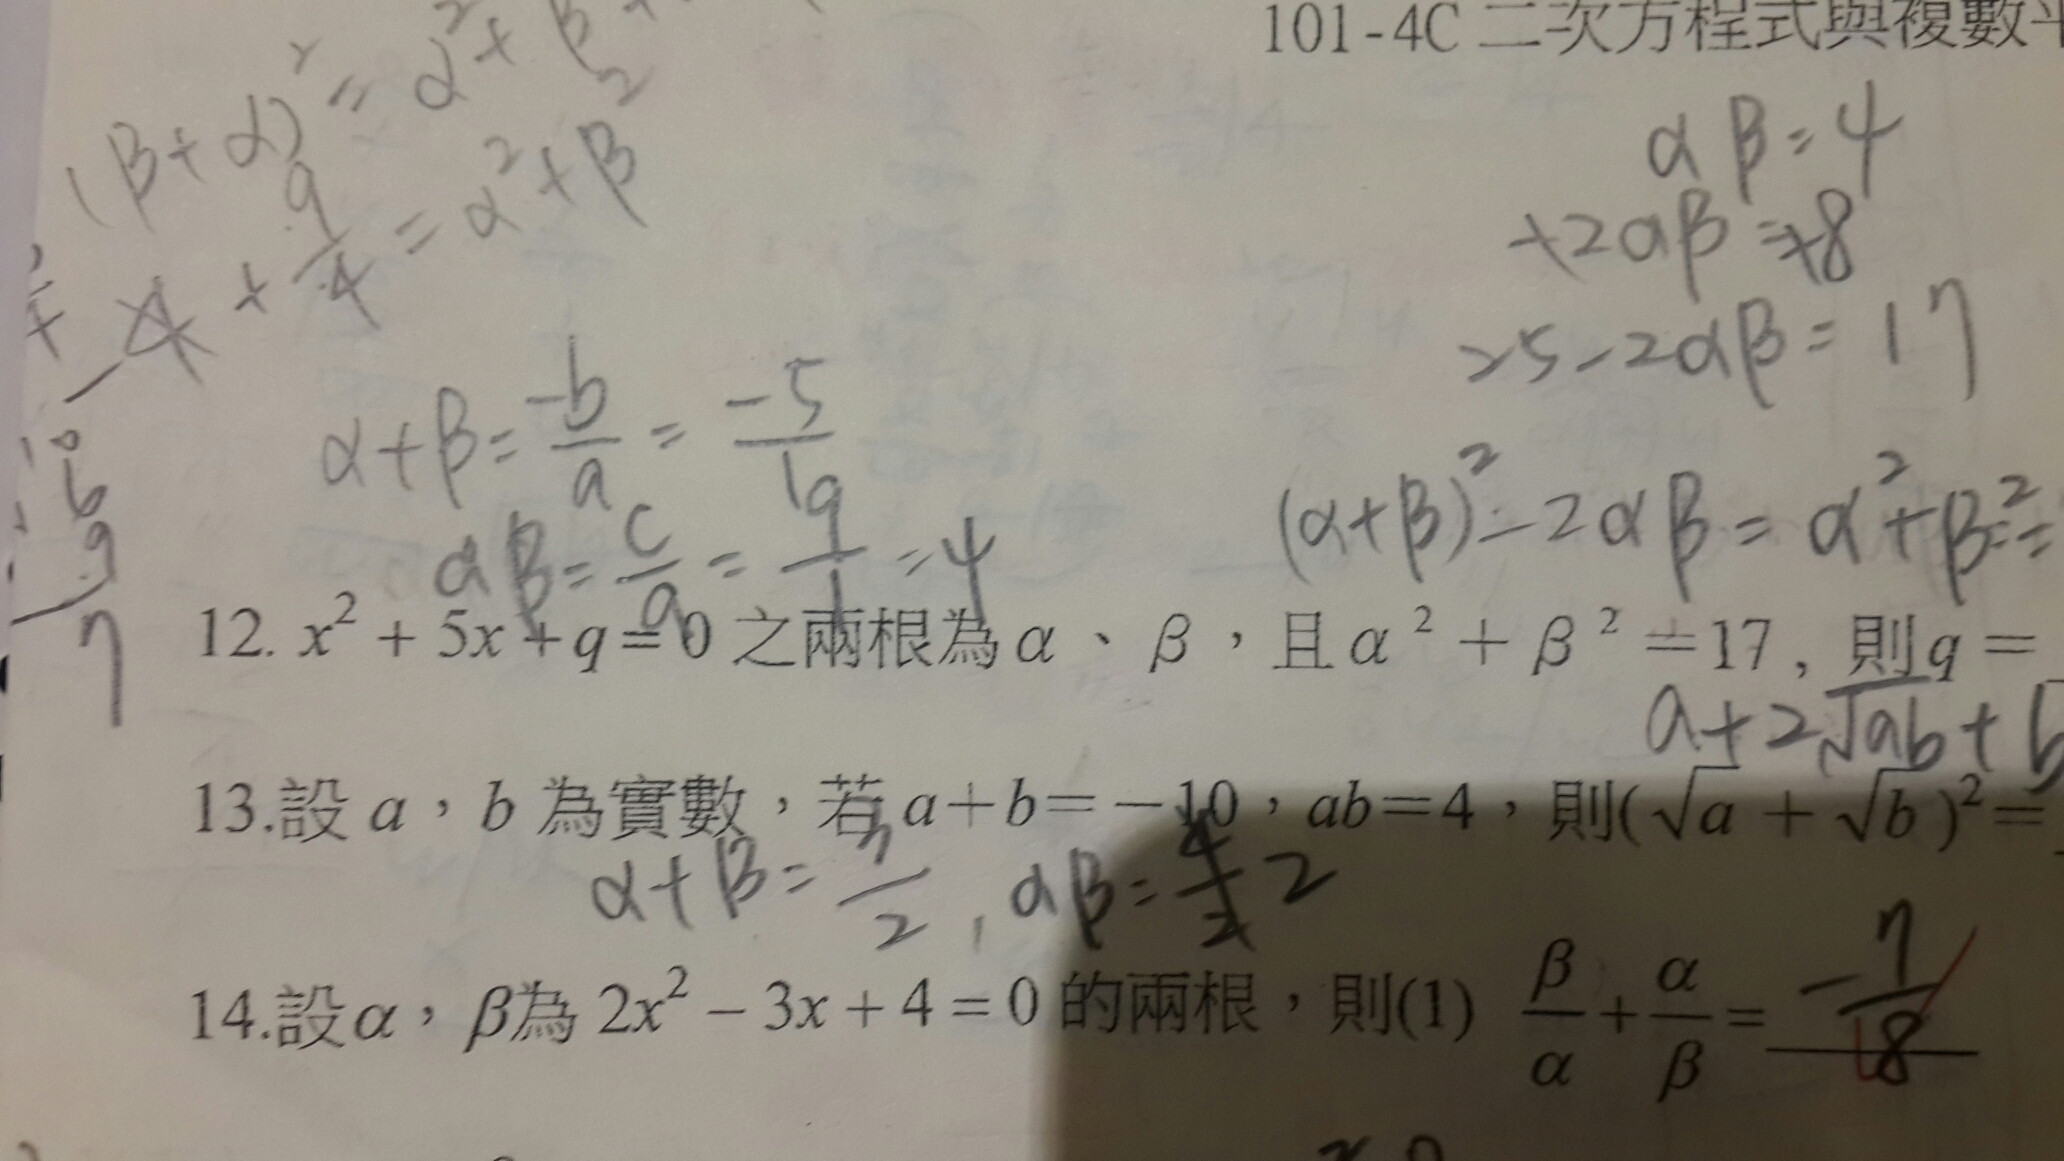 101-4C 二次方程式與複數平
(β+α)² = α²+β
+ 9/4 = α²+β²
αβ=4
+2αβ=+8
25-2αβ=17
α+β= -b/a = -5/1
αβ= c/a = q/1 =4
(α+β)²-2αβ = α²+β²=
12. x² + 5x + q = 0 之兩根為α、β，且α² + β² =17，則q =
a+2√ab+b
13.設 a，b 為實數，若 a+b=-10，ab=4，則(√a + √b)²=
α+β= 3/2, αβ= 4/2 2
14.設α，β為 2x² - 3x + 4 = 0 的兩根，則(1) β/α + α/β = -7/8